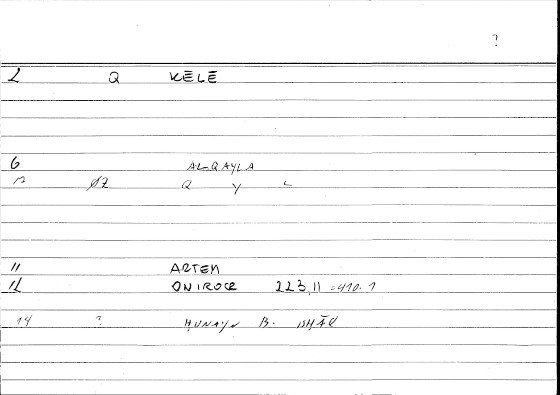 ?
2 Q KĒLĒ
6 ALQAYLA
12 ØZ Q Y L
11 ARTEM
12 ONIROCR 223,11 = 410.1
14 ? ḤUNAYN B. ISḤĀQ